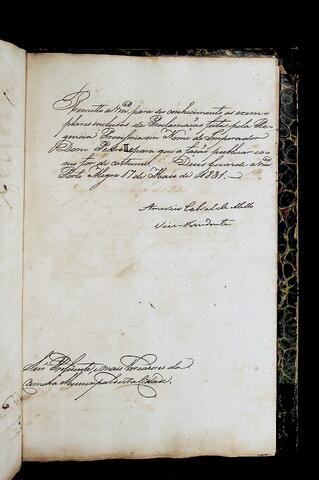 Remetto a Vmces para seo conhecimento, os exem-
plares inclusos da Proclamação feita pela Re-
gencia Provisoria em Nome do Imperador
Dom Pedro 2º, e para que a fação publicar
do costume. Deus Guarde a Vmces
Porto Alegre 17 de Maio de 1831.
Americo Cabral de Mello
Vice-Presidente
Snrs Presidente, e mais Vereadores da
Camara Municipal desta Cidade.